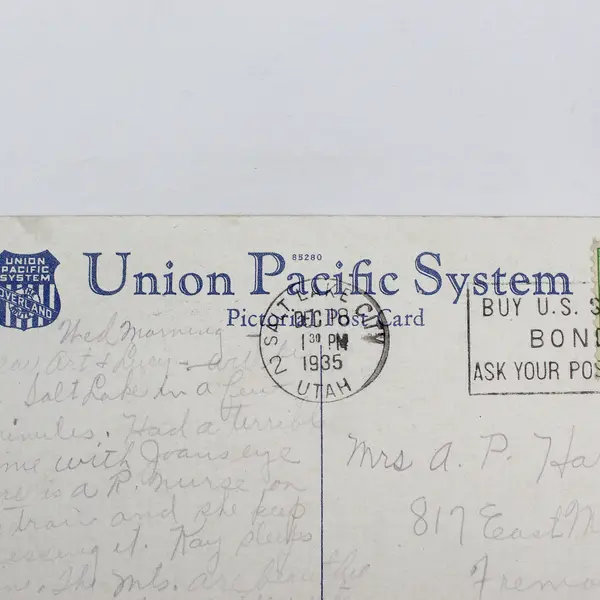 85280
UNION
PACIFIC
SYSTEM
THE
OVERLAND
Union Pacific System
Pictorial Post Card
SALT LAKE CITY
DEC 18
1 30 PM
1935
2 UTAH
BUY U.S. S
BOND
ASK YOUR POS
Wed Morning
Art & Lucy - will be
Salt Lake in a few
minutes. Had a terrible
me with Joans eye
re is a R. Nurse on
train and she kep
essing it. Kay sleeps
The Mts. are beautiful
Mrs A. P. Ha
817 East M
Fremo